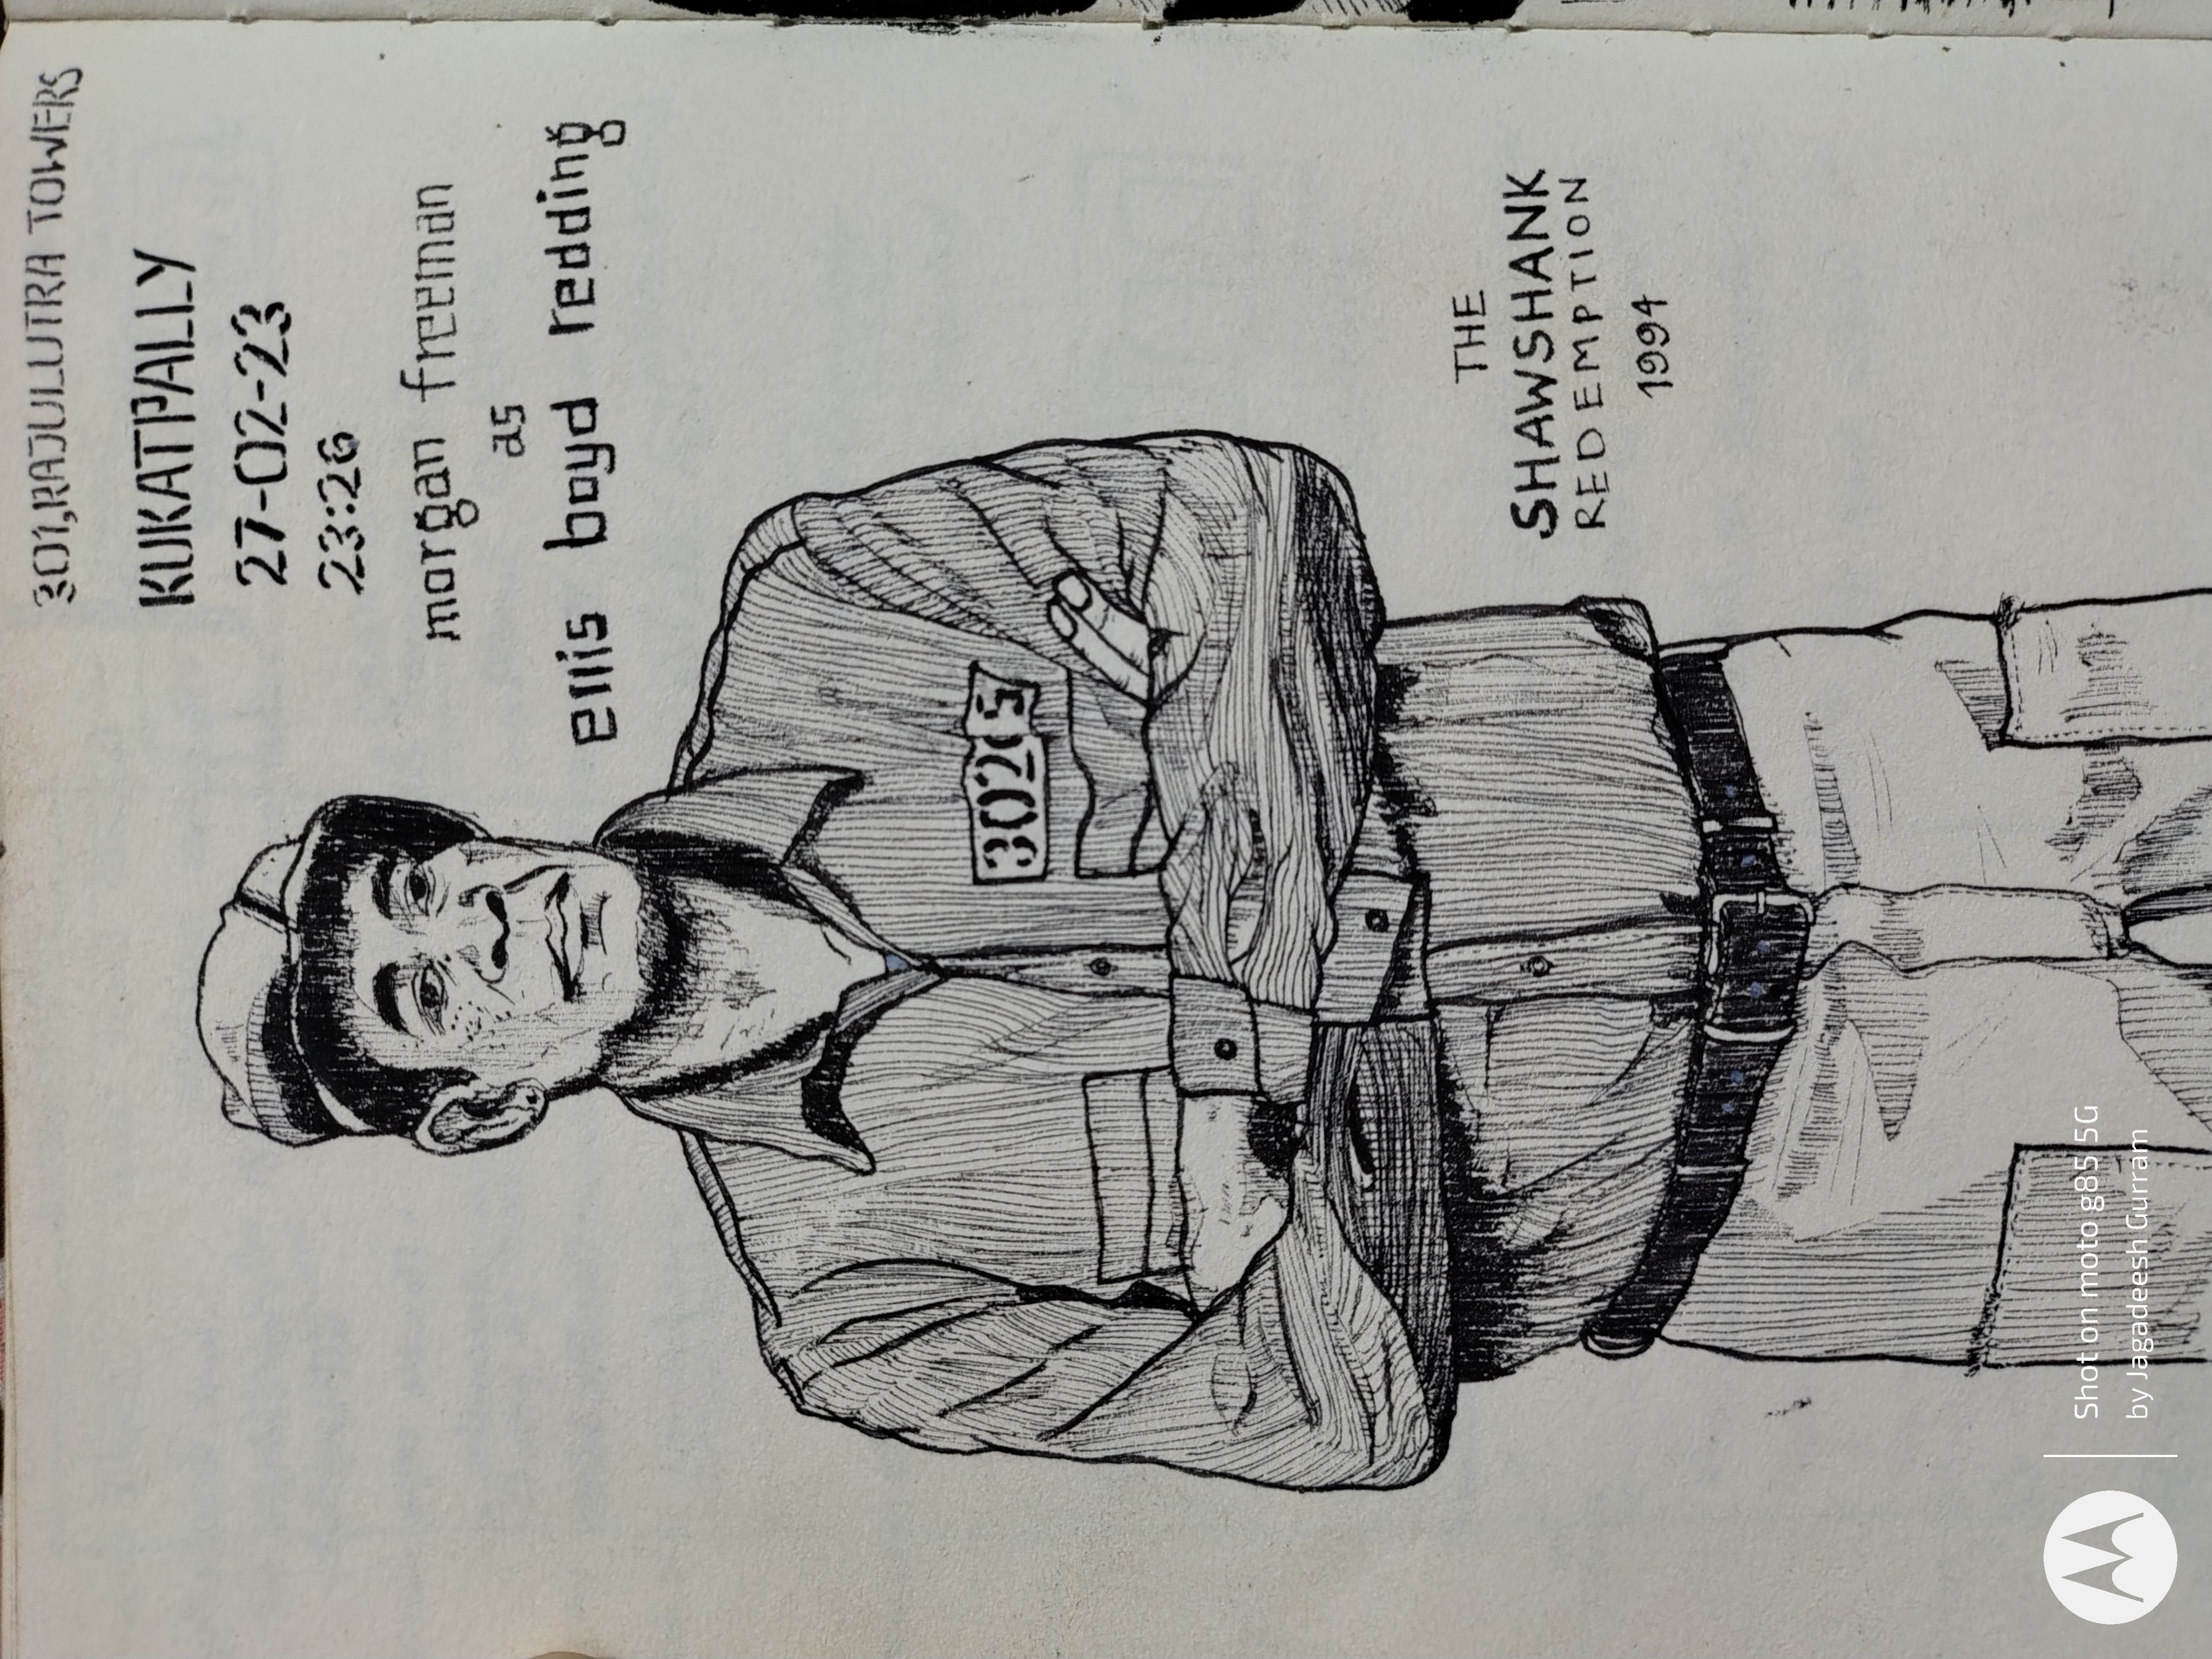 301,RAJULUTRA TOWERS
KUKATPALLY
27-02-23
23:26
morgan freeman
as
ellis boyd redding
30265
THE
SHAWSHANK
REDEMPTION
1994
Shot on moto g85 5G
by Jagadeesh Gurram